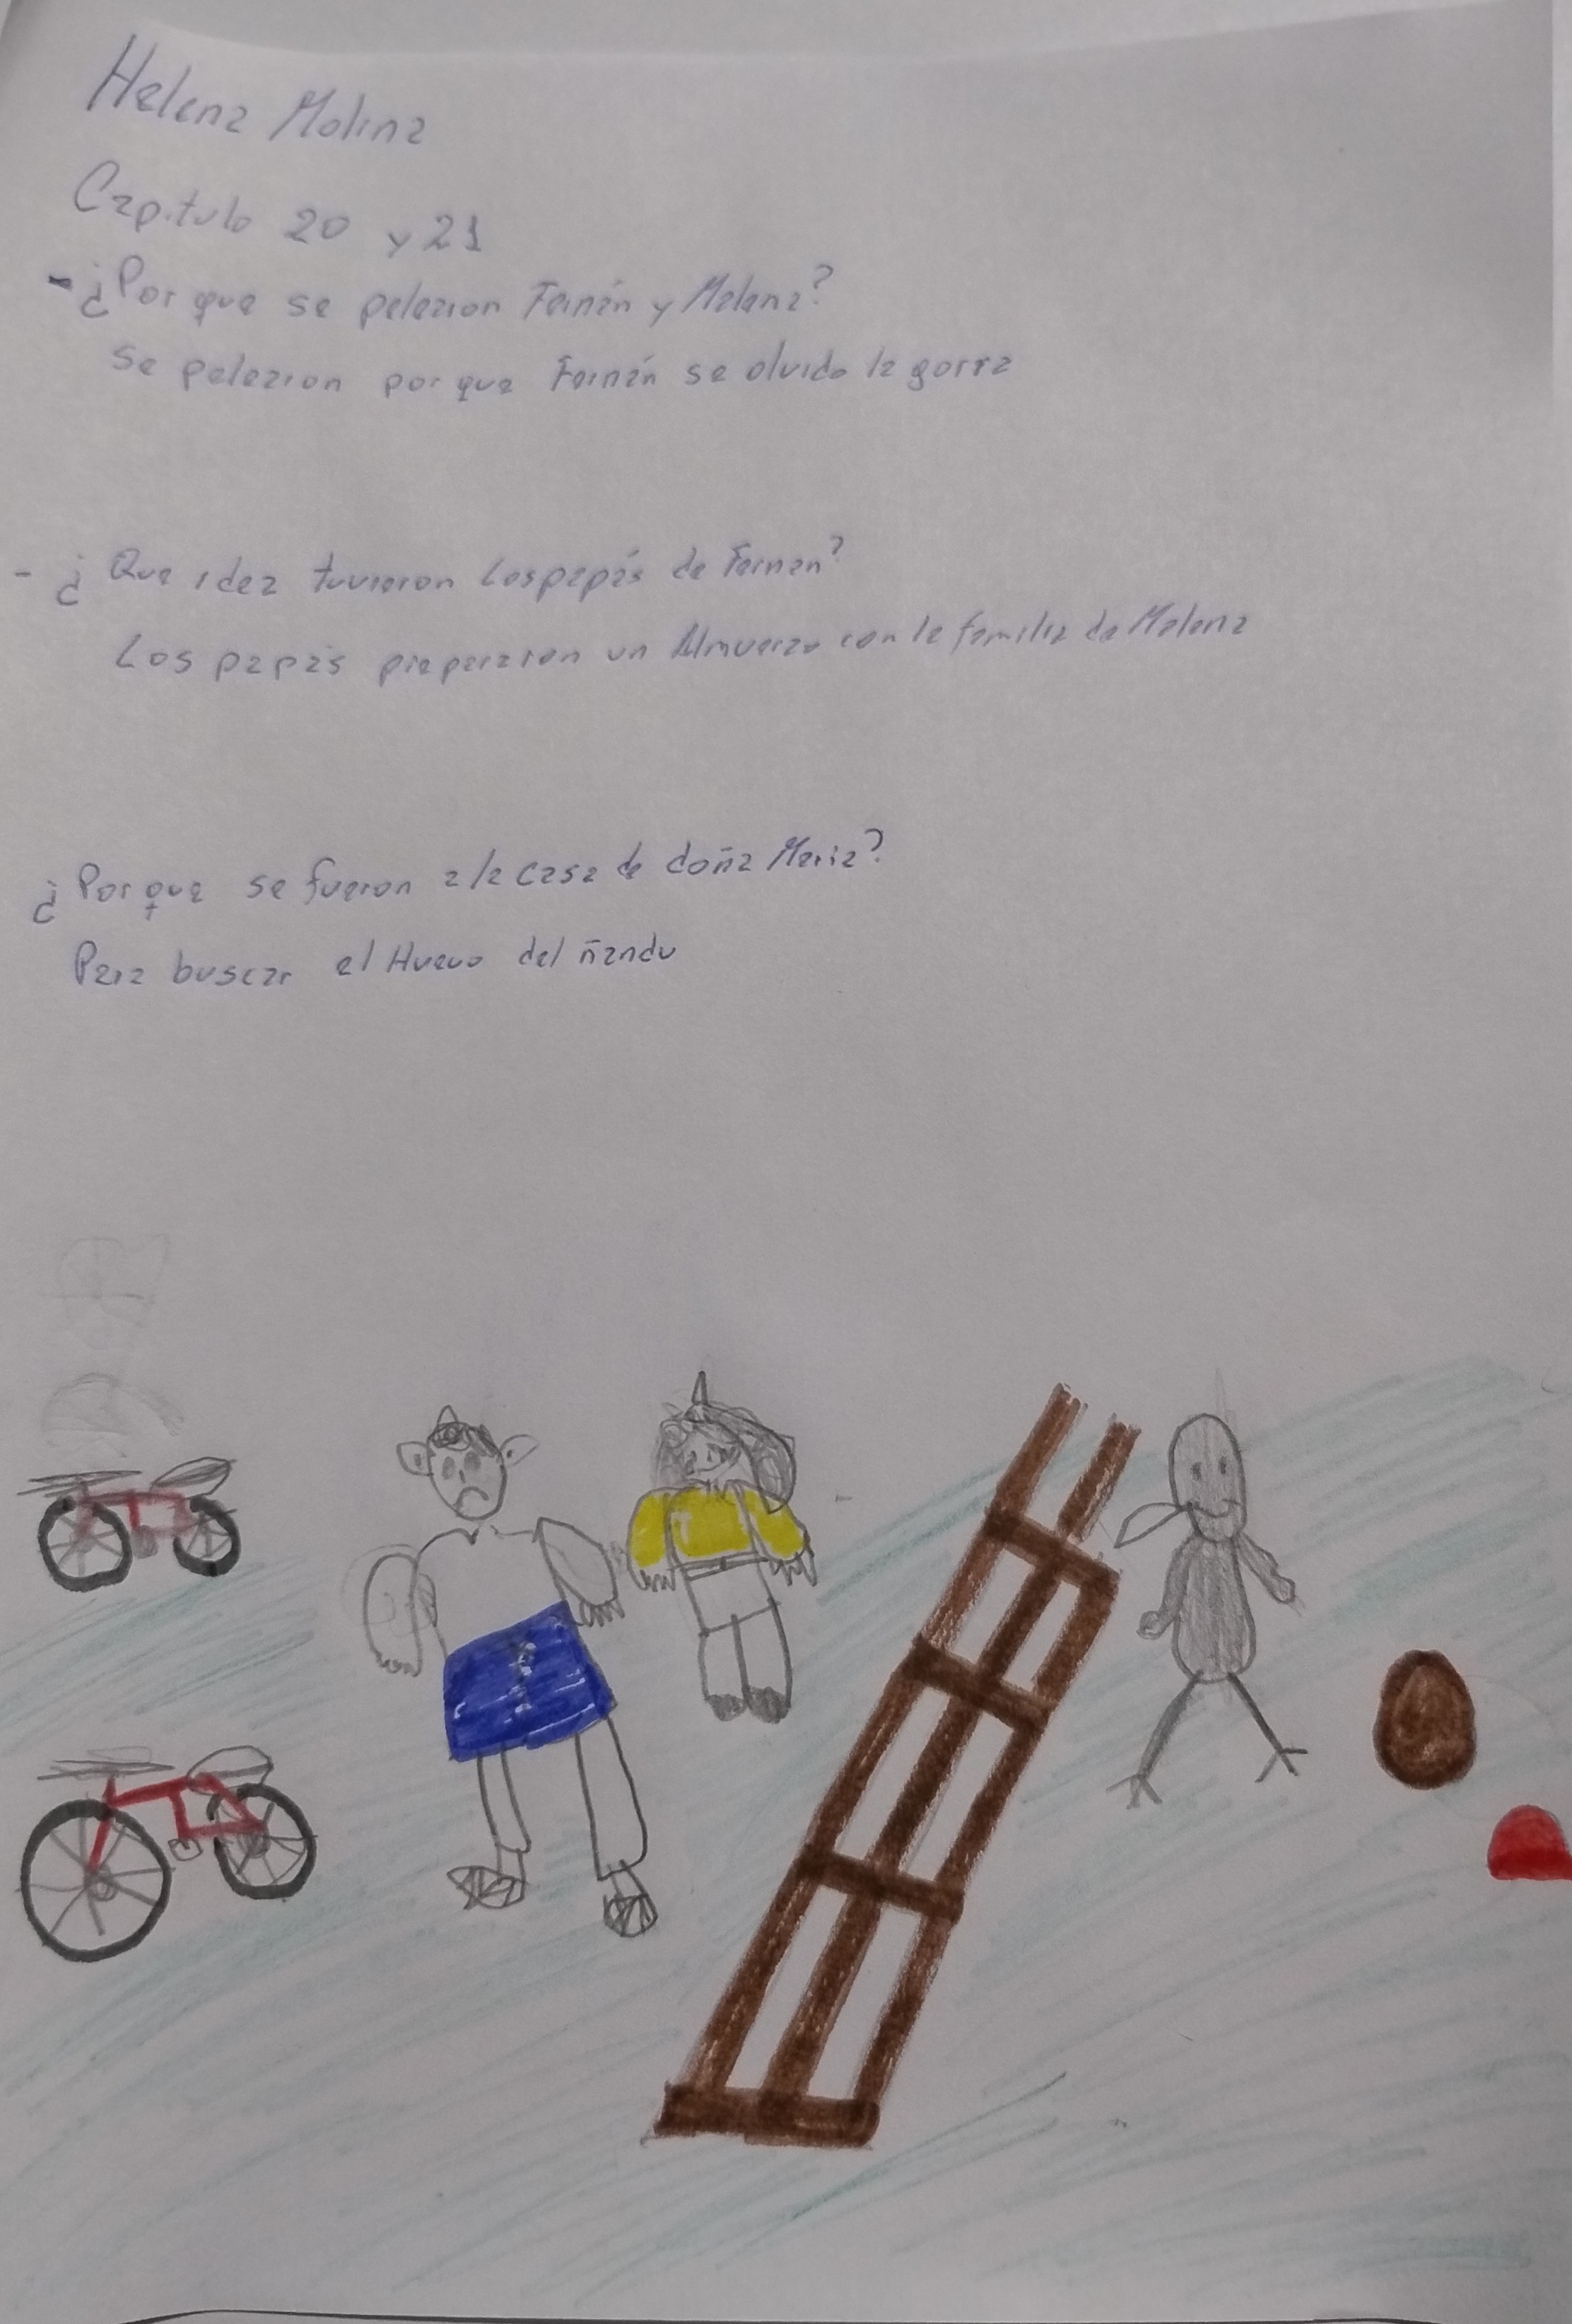 Helena Molina
Capitulo 20 y 21
- ¿Por que se pelearon Fernán y Malena?
Se pelearon por que Fernán se olvido la gorra
- ¿Que idea tuvieron Los papás de Fernan?
Los papás prepararon un Almuerzo con la familia de Malena
¿Por que se fueron a la casa de doña Maria?
Para buscar el Huevo del ñandu